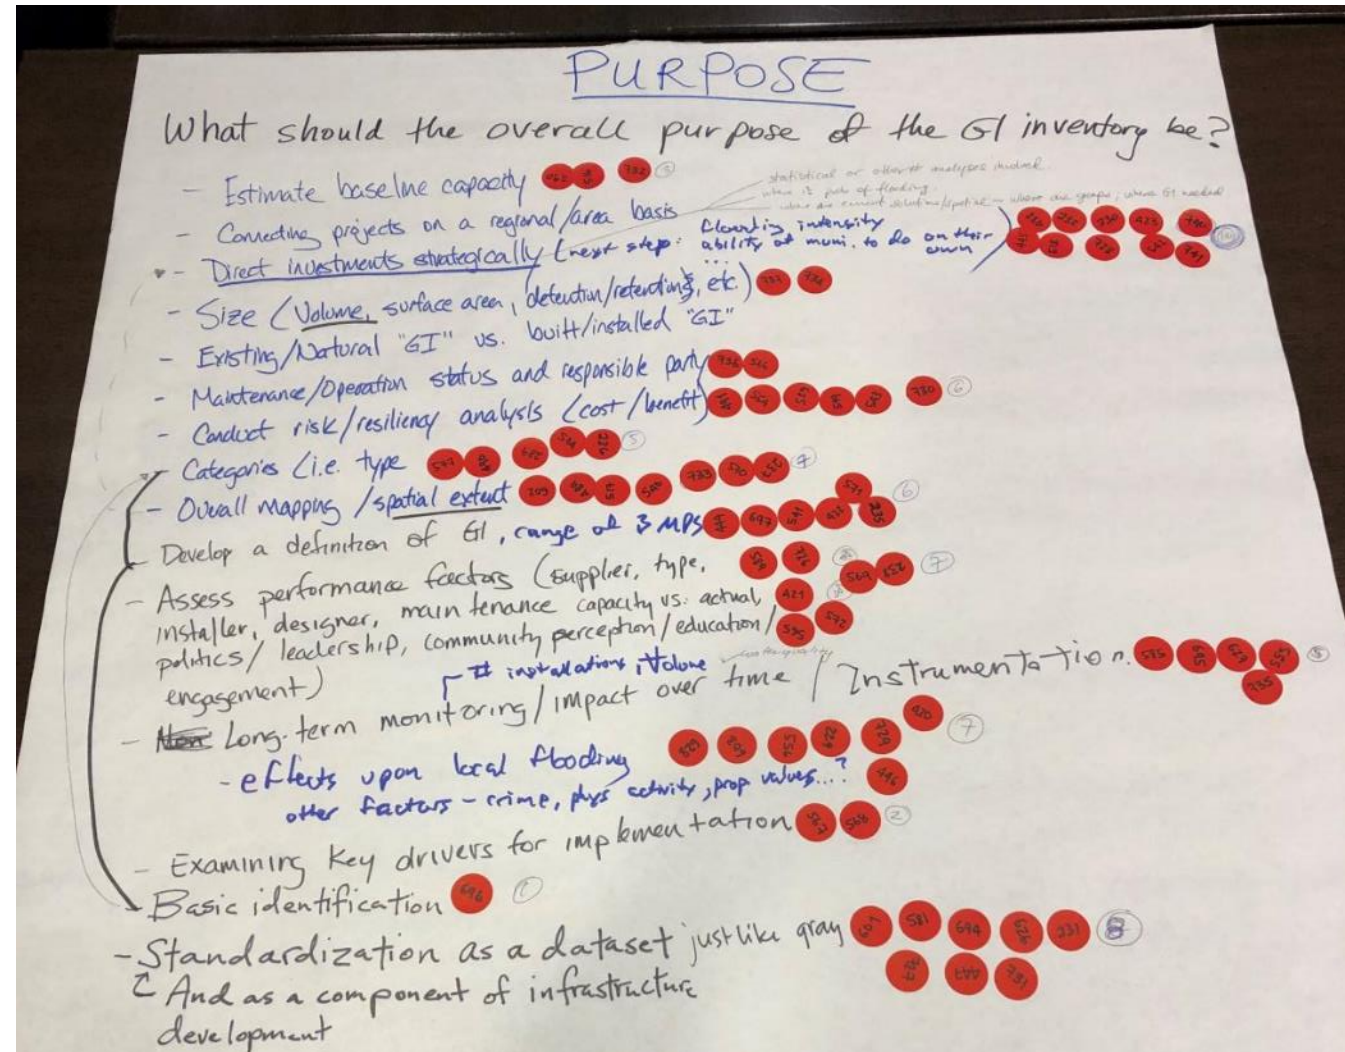 PURPOSE
What should the overall purpose of the GI inventory be?
- Estimate baseline capacity 732 3
statistical or other analyses
where is of flooding.
where are current solutions/spatial - where are gaps, where GI needed
- Connecting projects on a regional/area basis
- Direct investments strategically (next step: flooding intensity
ability of muni. to do on their own
...
- Size (Volume, surface area, detention/retention, etc.)
- Existing/Natural "GI" vs. built/installed "GI"
- Maintenance/Operation status and responsible party 736
- Conduct risk/resiliency analysis (cost/benefit) 730 6
- Categories (i.e. type 5
- Overall mapping /spatial extent 733
- Develop a definition of GI, range of 3 MPS 697 571 6
- Assess performance factors (supplier, type,
installer, designer, maintenance capacity vs. actual, 421
politics/ leadership, community perception/education/
engagement) 569 7
# installations, Volume water quality
- Long-term monitoring/impact over time / Instrumentation. 575
- effects upon local flooding 729 420 7
other factors - crime, phys activity, prop values...? 446
- Examining Key drivers for implementation 568 2
- Basic identification 696 1
- Standardization as a dataset just like gray 581 694 331 8
And as a component of infrastructure 731
development